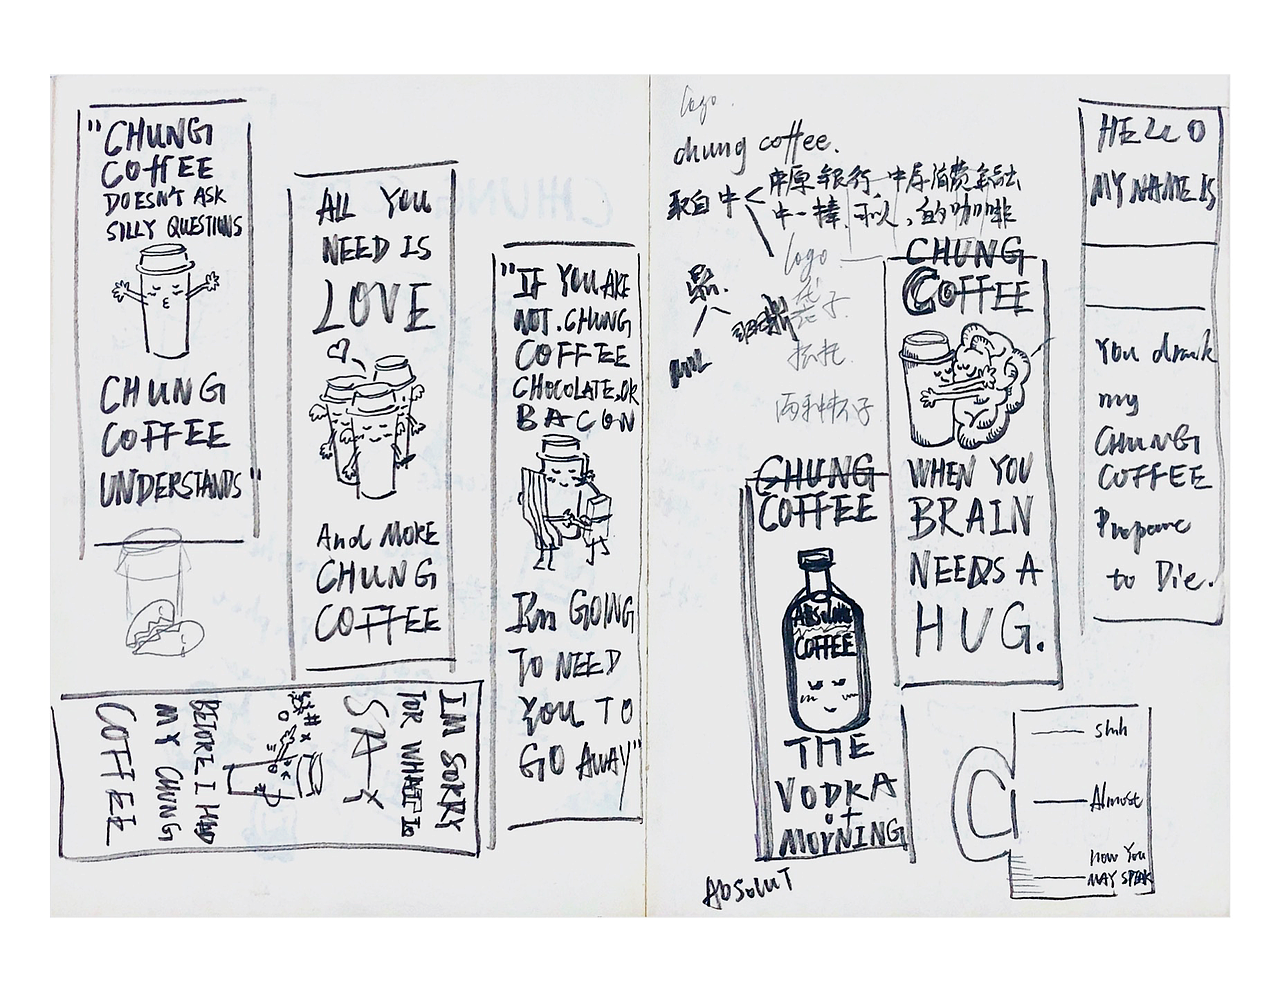 "CHUNG
COFFEE
DOESN'T ASK
SILLY QUESTIONS
CHUNG
COFFEE
UNDERSTANDS"
ALL YOU
NEED IS
LOVE
And MORE
CHUNG
COFFEE
"IF YOU ARE
NOT.CHUNG
COFFEE
CHOCOLATE,OR
BACON
I'm GOING
TO NEED
You TO
GO AWAY"
I'M SORRY
FOR WHAT I
SAY
BEFORE I HAD
MY CHUNG
COFFEE
logo.
chung coffee.
取自中
中原银行 中原消费金融
中一捧 可以 的咖啡
logo
CHUNG
COFFEE
WHEN YOU
BRAIN
NEEDS A
HUG.
两种杯子
CHUNG
COFFEE
ABSOLUT
COFFEE
THE
VODKA
of
MORNING
ABSOLUT
HELLO
MY NAME IS
You drank
my
CHUNG
COFFEE
Prepare
to Die.
shh
Almost
now You
MAY SPEAK